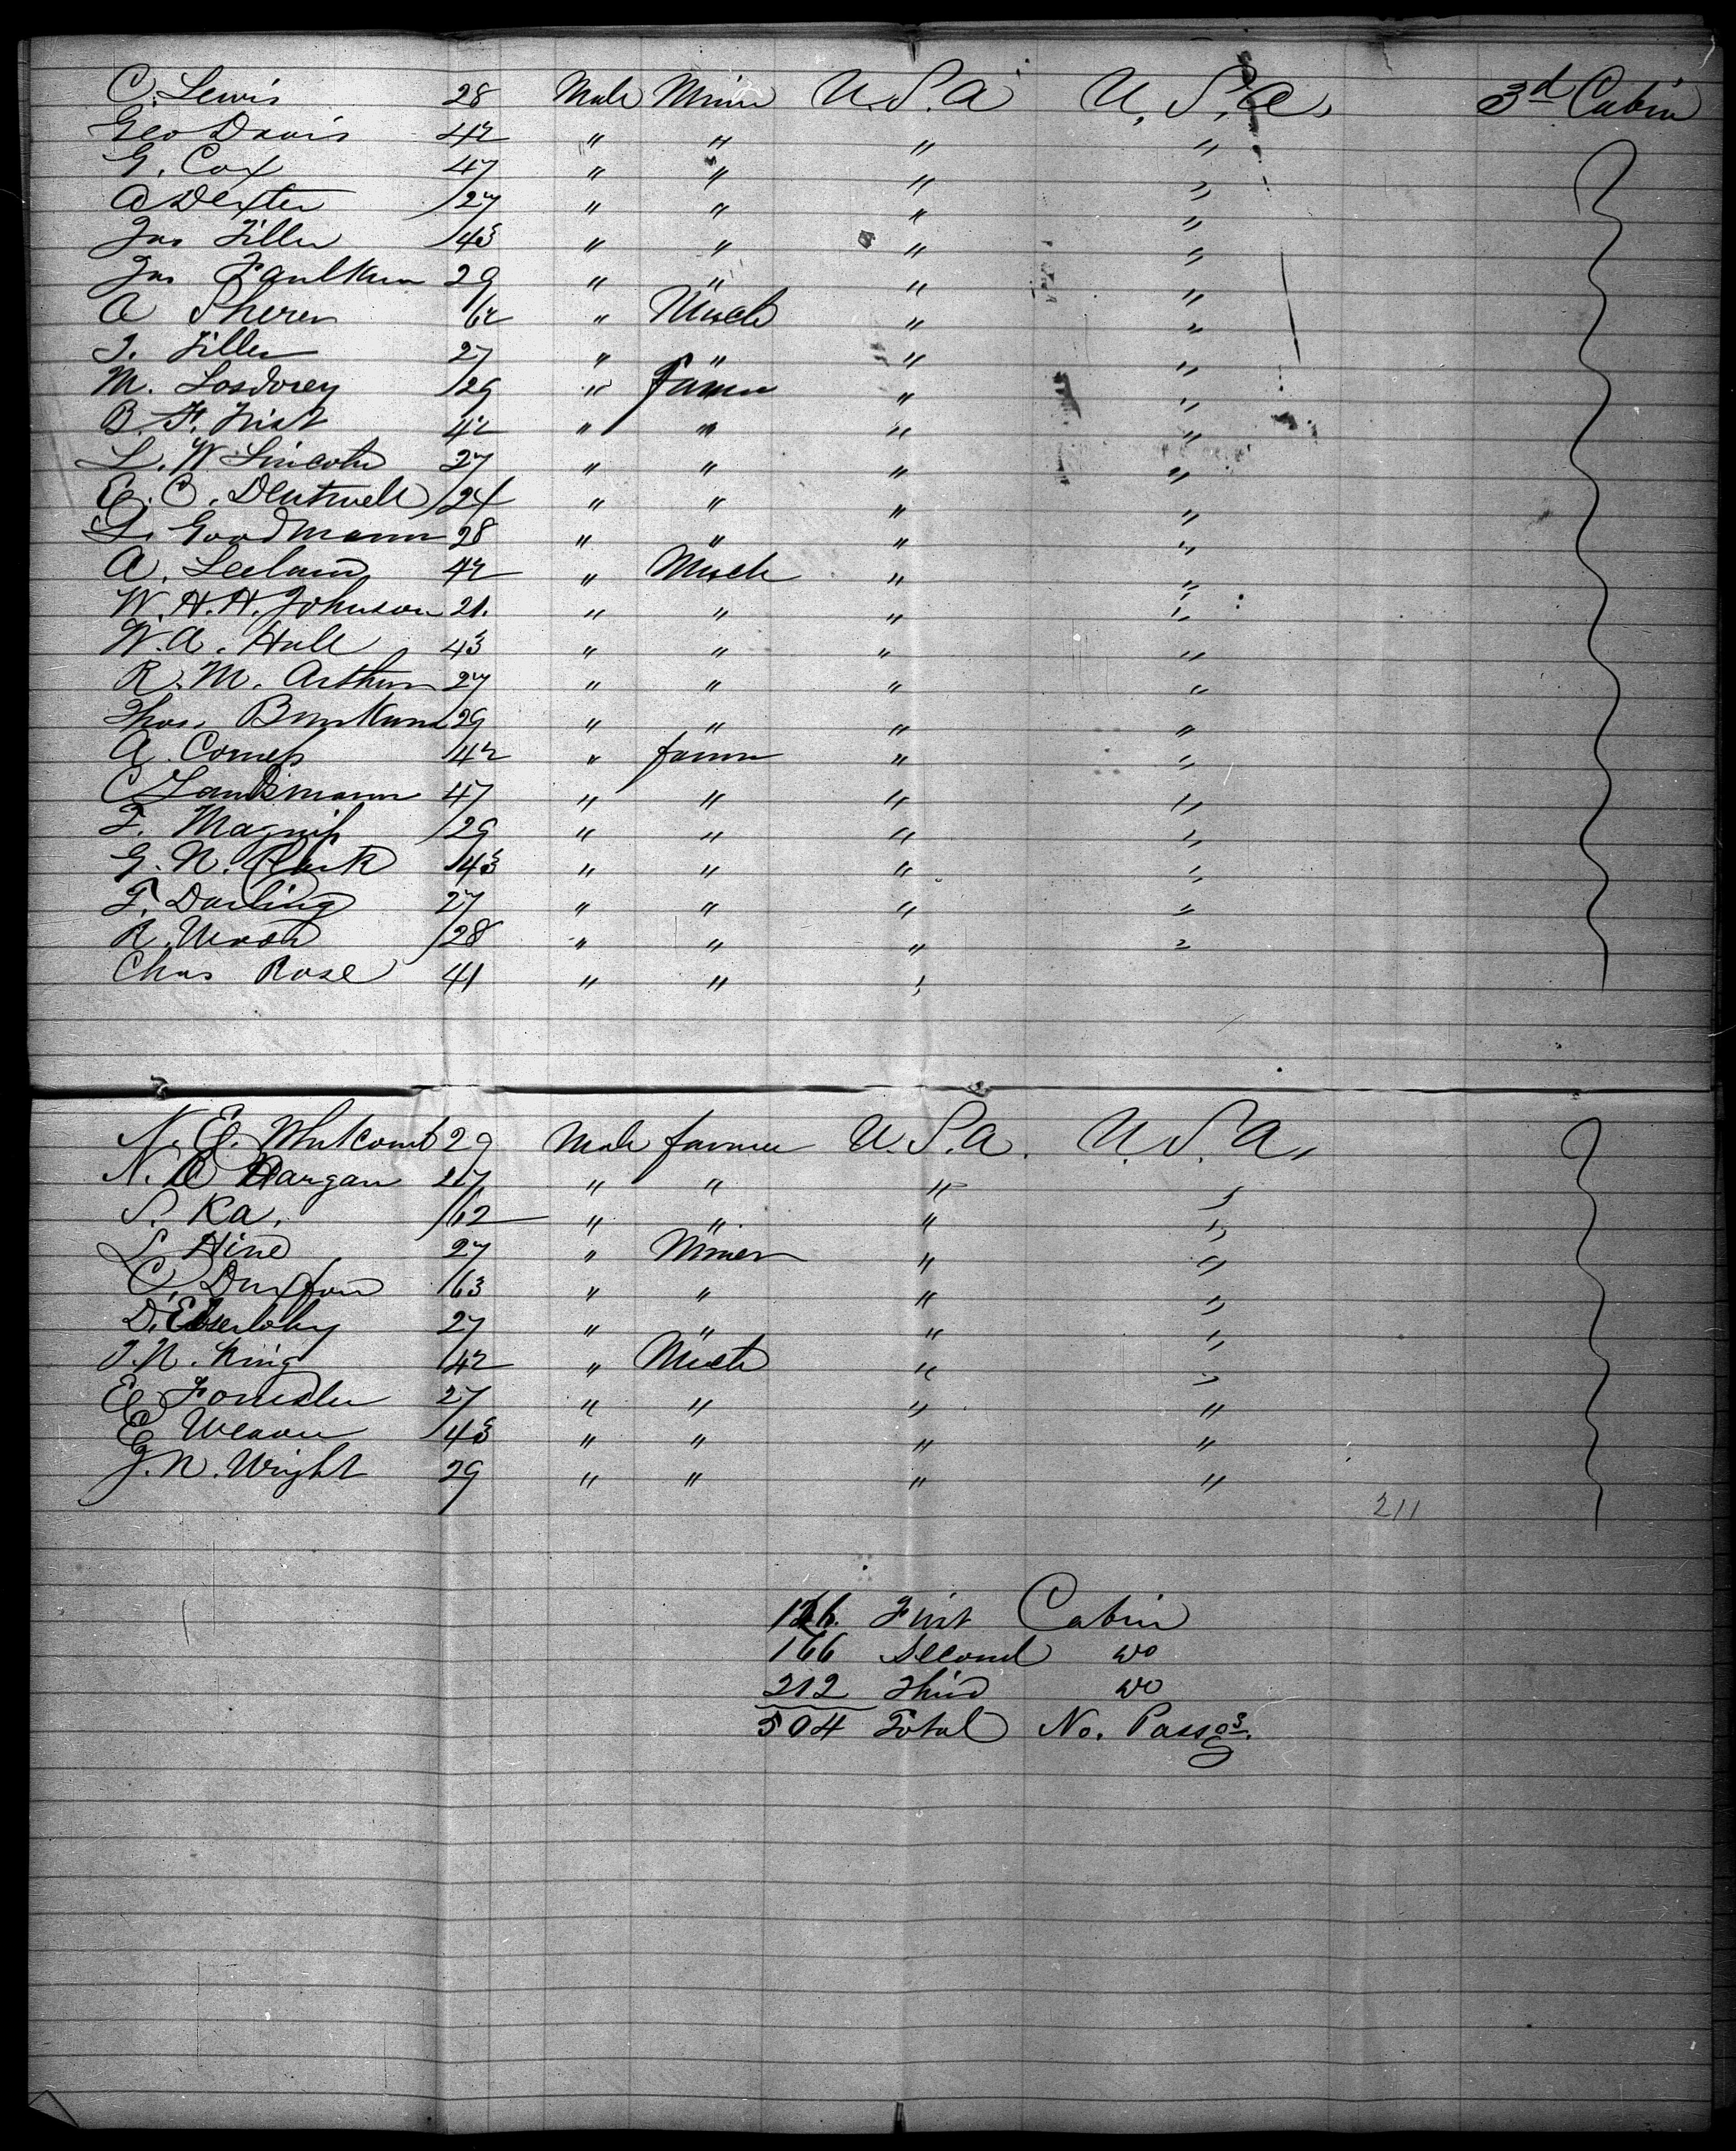 C. Lewis 28 Male Miner U.S.a U.S.a, 3d Cabin
Geo Davis 42 " " " "
G. Cox 47 " " " "
A Dexter 27 " " " "
Jas Filler 43 " " " "
Jas Faulkner 29 " " " "
A 62 " Mech " "
J. Filler 27 " " " "
M. 29 " farmer " "
B. F. Frist 42 " " " "
L. W Lincoln 27 " " " "
E. C. Dentwell 24 " " " "
L. Goodmann 28 " " " "
A. Leeland 42 " Mech " "
W. H. H. Johnson 21. " " " "
W. A. Hall 43 " " " "
R. M. Arthur 27 " " " "
Thos. 29 " " " "
A. 42 " farmer " "
C Landsmann 47 " " " "
F. 29 " " " "
G. N. Park 43 " " " "
F. Darling 27 " " " "
R. Wood 28 " " " "
Chas Rose 41 " " "
N. E. Whitcomb 29 Male farmer U.S.a. U.S.a,
N. C Hargan 27 " " " "
S. Ka. 62 " " " "
L. Hine 27 " Miner " "
C. 63 " " " "
D. 27 " " " "
J. N. King 42 " Mech " "
E Forrester 27 " " " "
E Weaver 43 " " " "
J. N. Wright 29 " " " "
211
126. First Cabin
166 Second do
212 Third do
504 Total No. Passgs.